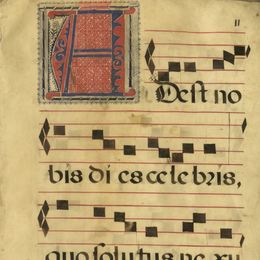 II
A Dest no
bis di es celebris,
quo solutus ne xu